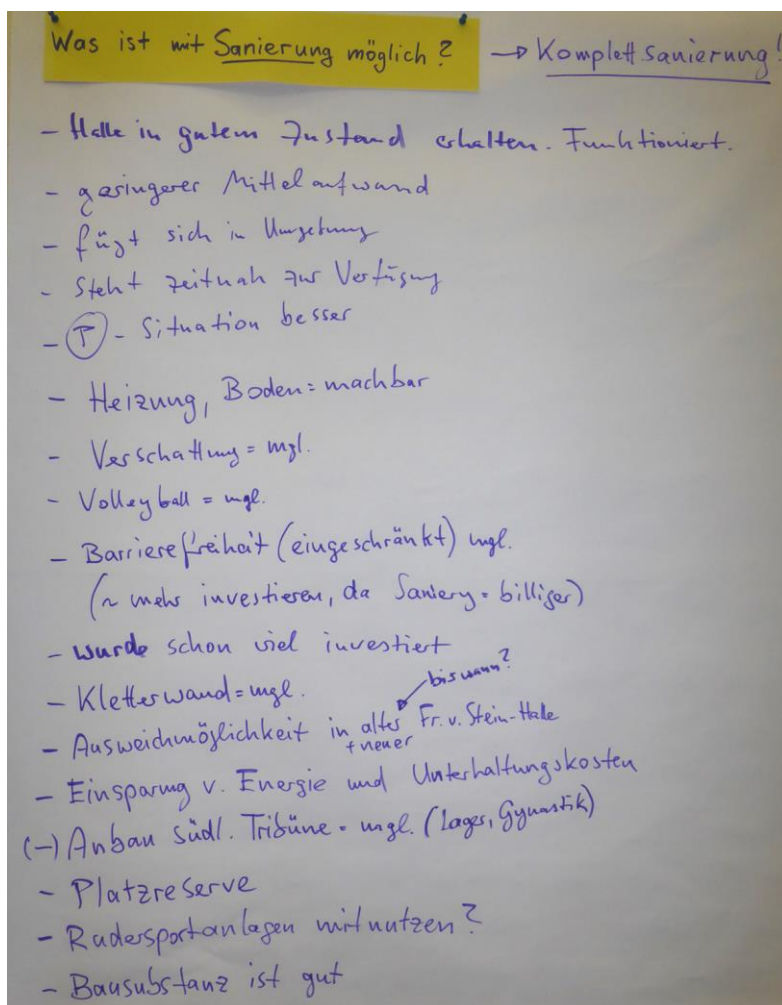 Was ist mit Sanierung möglich? → Komplettsanierung!
- Halle in gutem Zustand erhalten. Funktioniert.
- geringerer Mittelaufwand
- fügt sich in Umgebung
- Steht zeitnah zur Verfügung
- (P) - Situation besser
- Heizung, Boden = machbar
- Verschattung = mgl.
- Volleyball = mgl.
- Barrierefreiheit (eingeschränkt) mgl.
(~ mehr investieren, da Sanierg = billiger)
- wurde schon viel investiert
- Kletterwand = mgl.
bis wann?
- Ausweichmöglichkeit in alter Fr. v. Stein-Halle
+ neuer
- Einsparung v. Energie und Unterhaltungskosten
(-) Anbau südl. Tribüne = mgl. (Lager, Gynastik)
- Platzreserve
- Rudersportanlagen mitnutzen?
- Bausubstanz ist gut